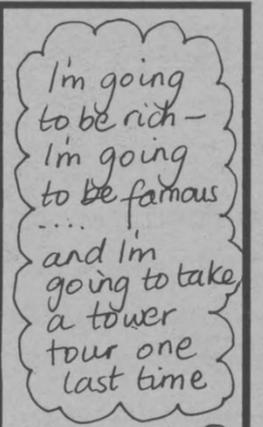 I'm going
to be rich —
I'm going
to be famous
....
and I'm
going to take
a tower
tour one
last time